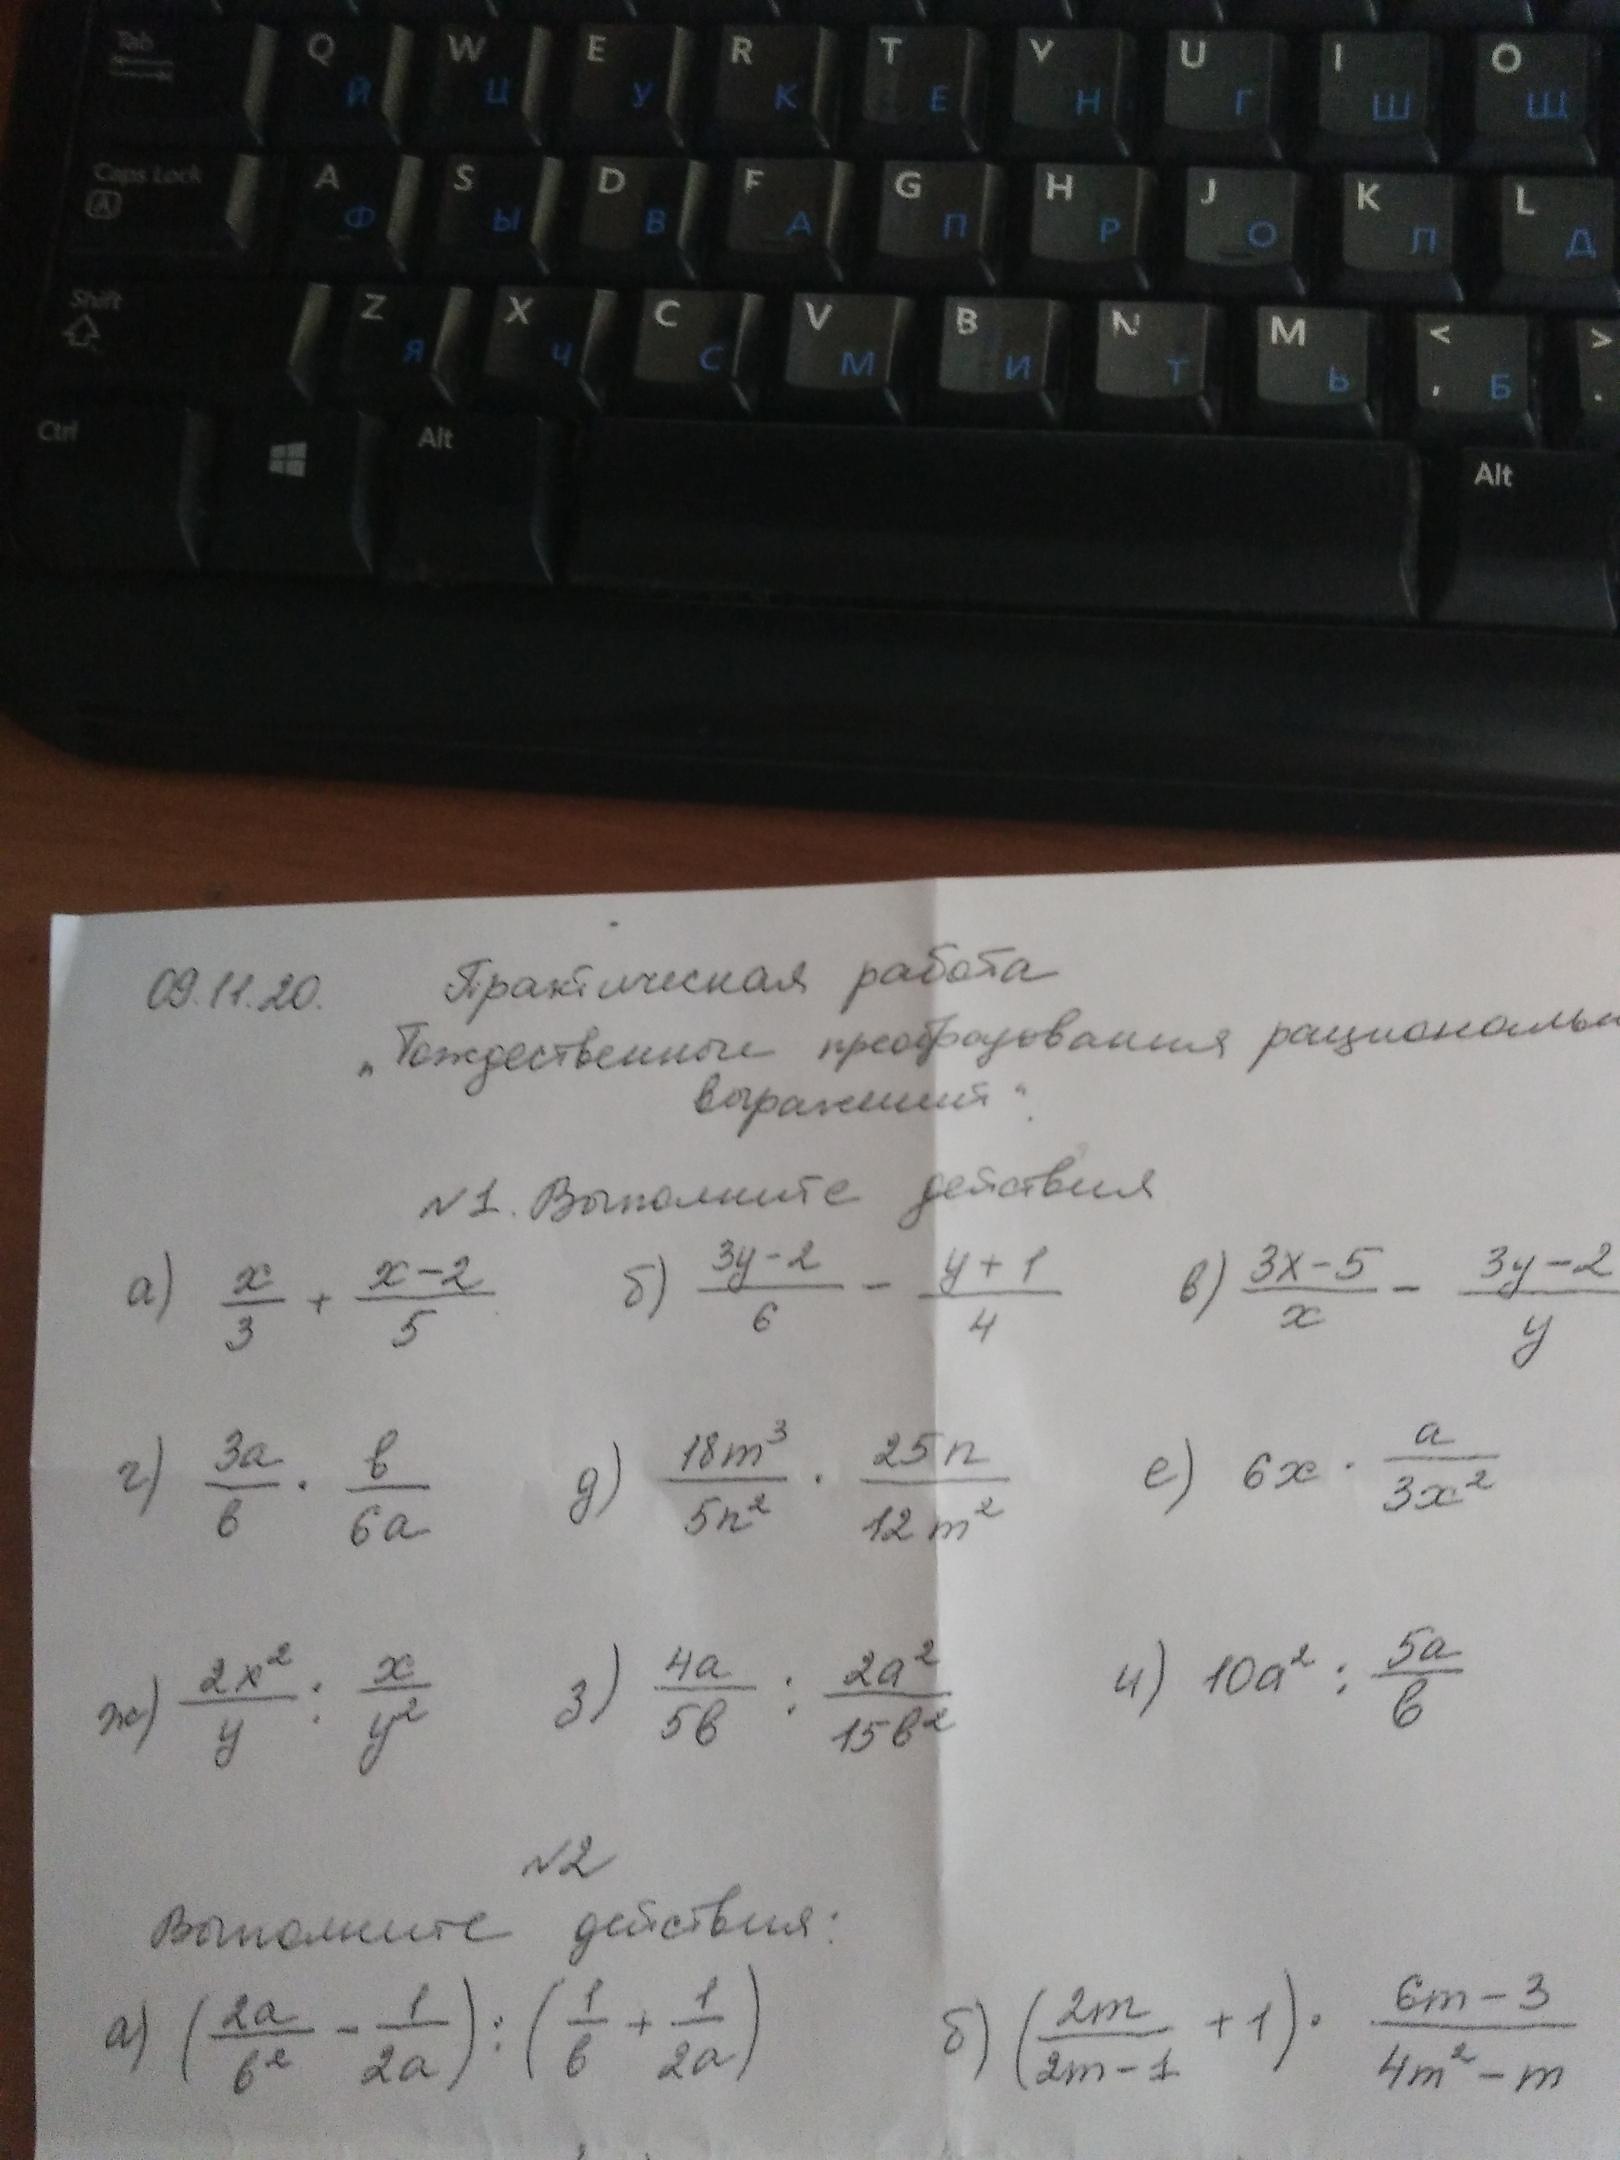 Tab Q Й W Ц E У R К T Е Y Н U Г I Ш O Щ
Caps Lock A A Ф S Ы D В F А G П H Р J О K Л L Д
Shift Z Я X Ч C С V М B И N Т M Ь < , Б > .
Ctrl Alt Alt
09.11.20. Практическая работа
„Тождественные преобразования рациональн
выражений“.
№1. Выполните действия
а) x/3 + (x-2)/5 б) (3y-2)/6 - (y+1)/4 в) (3x-5)/x - (3y-2)/y
г) 3a/в · в/6a д) 18m³/5n² · 25n/12m² е) 6x · a/3x²
ж) 2x²/y : x/y² з) 4a/5в : 2a²/15в² и) 10a² : 5a/в
№2
Выполните действия:
а) (2a/в² - 1/2a) : (1/в + 1/2a) б) (2m/(2m-1) + 1) · (6m-3)/(4m²-m)